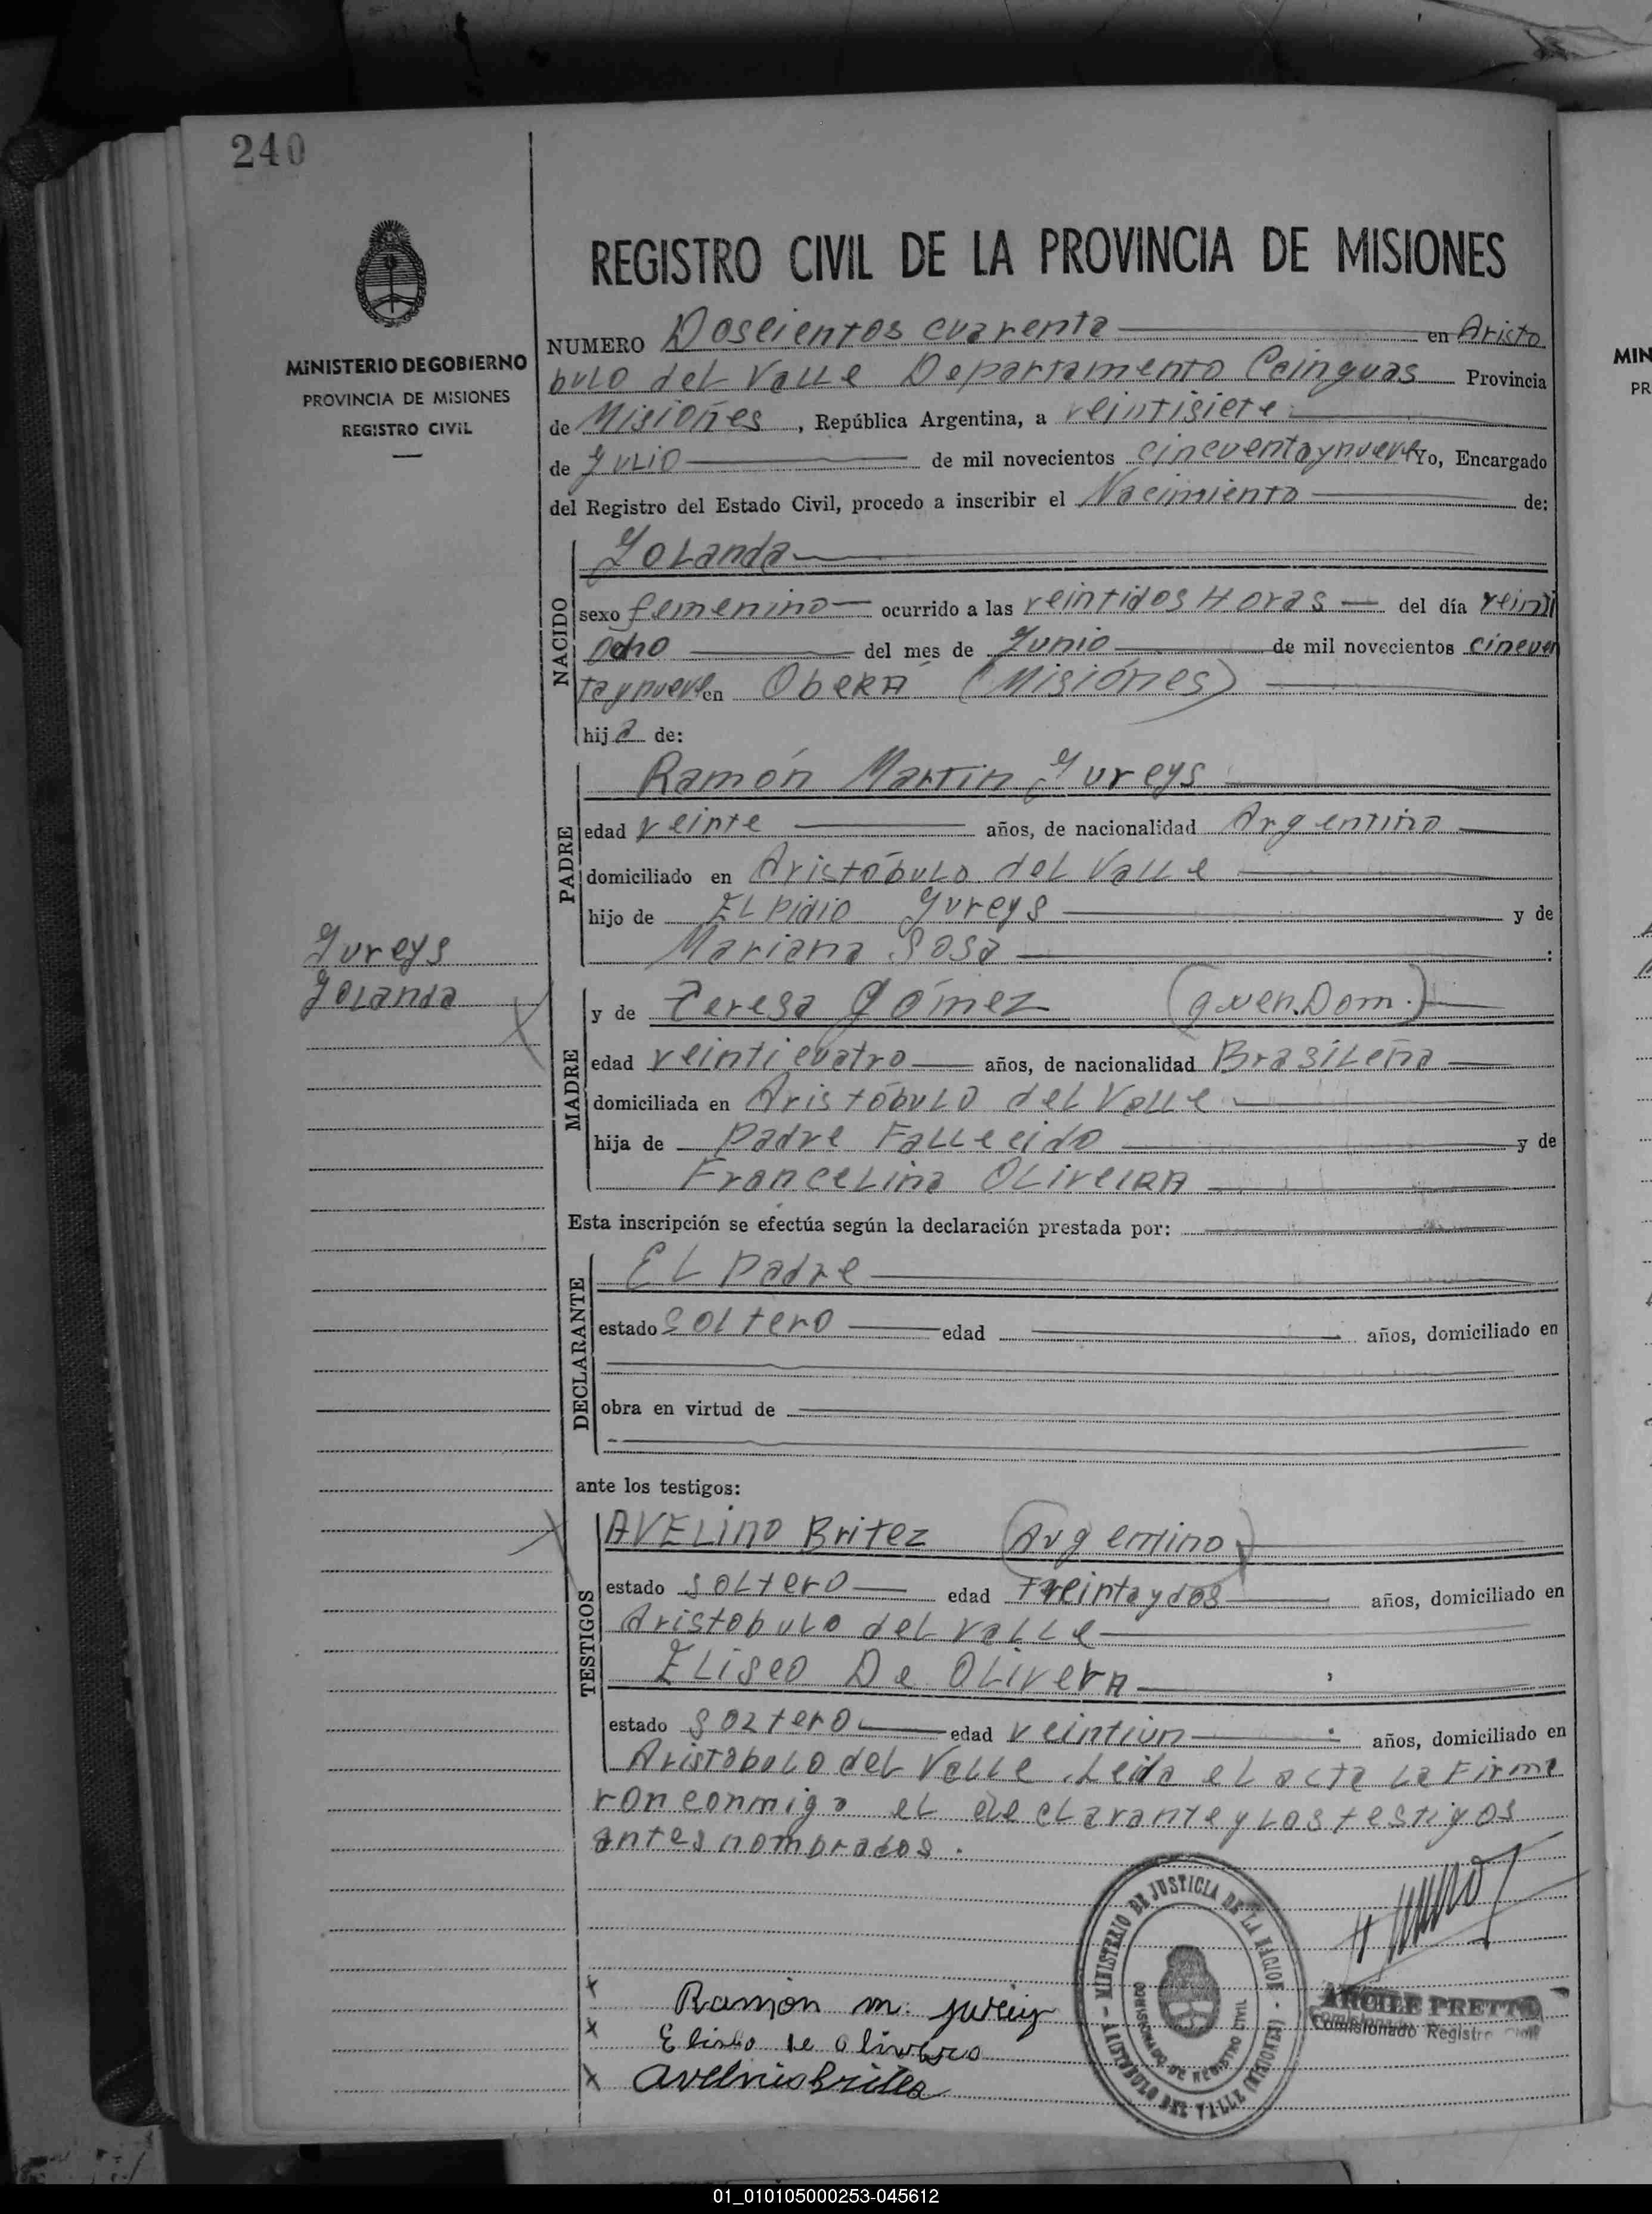 240
MINISTERIO DE GOBIERNO
PROVINCIA DE MISIONES
REGISTRO CIVIL
REGISTRO CIVIL DE LA PROVINCIA DE MISIONES
NUMERO Doscientos cuarenta en Aristo
bulo del Valle Departamento Cainguas Provincia
de Misiones, República Argentina, a veintisiete
de Julio de mil novecientos cincuentaynueve Yo, Encargado
del Registro del Estado Civil, procedo a inscribir el Nacimiento de:
NACIDO
Yolanda
sexo femenino ocurrido a las veintidos Horas del día veinti
ocho del mes de Junio de mil novecientos cincuen
taynueve en Oberá (Misiones)
hija de:
PADRE
Ramón Martin Jureys
edad veinte años, de nacionalidad Argentino
domiciliado en Aristóbulo del Valle
hijo de Elpidio Jureys y de
Mariana Sosa :
Jureys
Yolanda
MADRE
y de Teresa Gómez (q.uen.Dom.)
edad veinticuatro años, de nacionalidad Brasileña
domiciliada en Aristóbulo del Valle
hija de padre Fallecido y de
Francelina Oliveira
Esta inscripción se efectúa según la declaración prestada por:
DECLARANTE
El padre
estado soltero edad años, domiciliado en
obra en virtud de
ante los testigos:
TESTIGOS
Avelino Britez (Argentino)
estado soltero edad treintaydos años, domiciliado en
Aristobulo del Valle
Eliseo De Olivera
estado soltero edad veintiun años, domiciliado en
Aristobulo del Valle. Leida el acta la Firma
ron conmigo el declarante y los testigos
antes nombrados.
MINISTERIO DE JUSTICIA DE LA NACION
COMISIONADO DE REGISTRO CIVIL
ARISTOBULO DEL VALLE (MISIONES)
ARCILE PRETTO
Comisionado Registro Civil
Ramón m. jureiy
Eliseo de olivera
Avelino Britez
MIN
PR
01_010105000253-045612